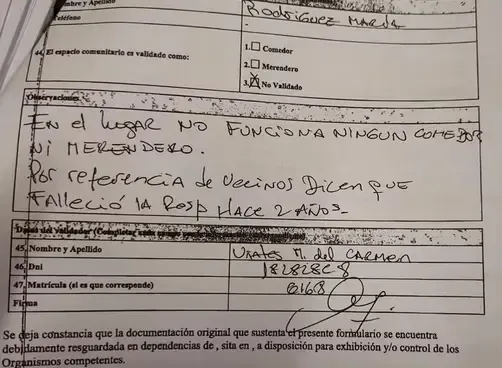 Nombre y Apellido Rodríguez María
Teléfono
44. El espacio comunitario es validado como:
1. Comedor
2. Merendero
3. No Validado
Observaciones
EN el lugar NO FUNCIONA NINGUN COMEDOR
NI MERENDERO.
Por referencia de Vecinos Dicen que
Falleció la Resp Hace 2 años-
Datos del validador (Completar
45. Nombre y Apellido M. del CARMEN
46. Dni
47. Matrícula (si es que corresponde)
Firma
Se deja constancia que la documentación original que sustenta el presente formulario se encuentra
debidamente resguardada en dependencias de , sita en , a disposición para exhibición y/o control de los
Organismos competentes.